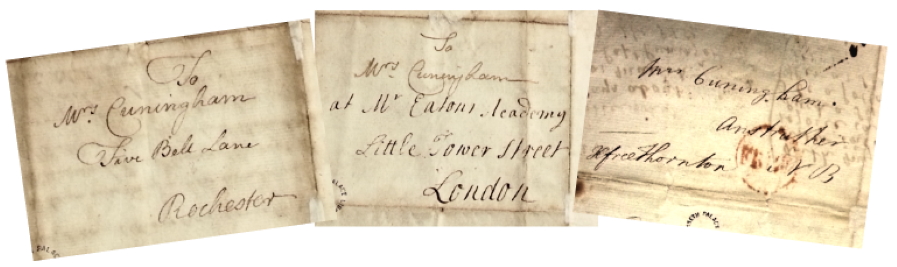 To
Mrs Cuningham
Five Bell Lane
Rochester
To
Mrs Cuningham
at Mr Eatons Academy
Little Tower Street
London
Mrs Cuningham.
Anstruther
Hfree Thornton N B